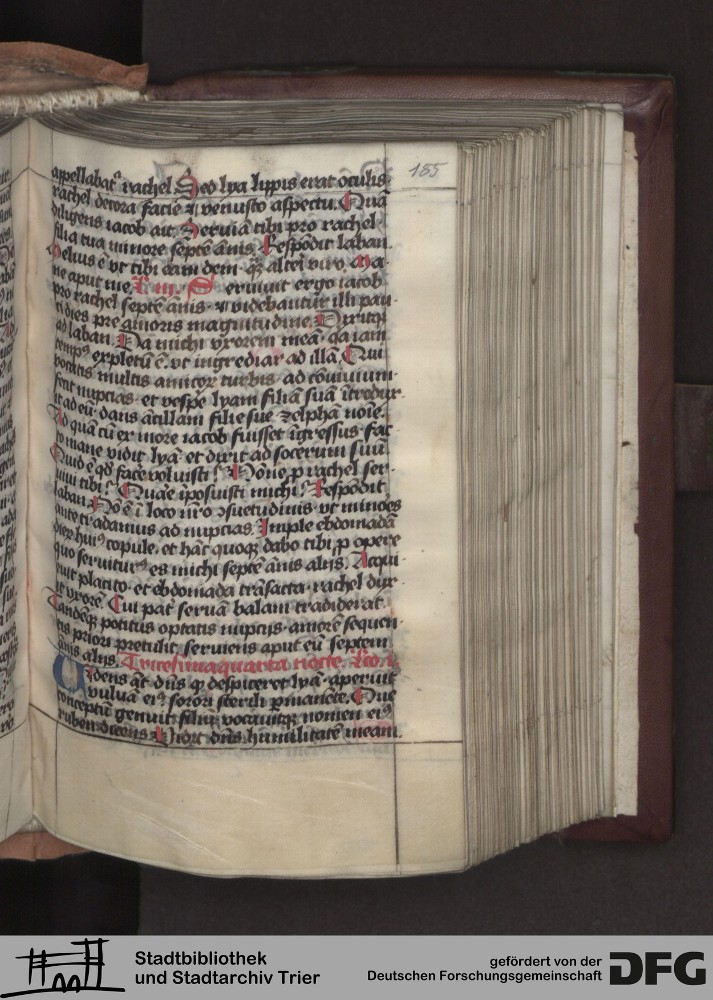 155
appellabat᷑ rachel Sed lya lippis erat oculis
rachel decora facie ⁊ venusto aspectu. Quā
diligens iacob ait. Seruiā tibi pro rachel
filia tua minore septē ānis. Respōdit laban.
Melius ē vt tibi eam dem qͣȝ alteri viro. Ma-
ne aput me. S eruiuit ergo iacob
pro rachel septē ānis. ⁊ videbantur illi pau-
ci dies pre amoris magnitudine. Dixitqȝ
ad laban. Da michi vxorem meā. qa iam
tempꝰ expletū ē. vt ingrediar ad illā. Qui
vocatis multis amicoꝝ turbis. ad cōuiuium
fecit nupcias. et vespe lyam filiā suā ītrodux-
it ad eū. dans ācillam filie sue zelphā noīe.
Ad quā cū ex more iacob fuisset īgressus. fac-
to mane vidit lyā. et dixit ad socerum suū
Quid ē qd face voluisti? Nōne ꝓ rachel ser-
uiui tibi? Quare īposuisti michi? Respōdit
laban. Nō ē ī loco nr̄o ↄsuetudinis. vt minores
ante tradamus ad nupcias. Imple ebdomadā
dierꝝ huiꝰ copule. et hāc quoqȝ dabo tibi ꝓ opere
quo seruiturꝰ es michi septē ānis alijs. Acqui-
euit placito. et ebdomada trāsacta. rachel dux-
it vxorē. Cui pat̄ seruā balam tradiderat.
Tandēqȝ potitus optatis nupcijs. amorē sequen-
tis priori pretulit. seruiens aput eū septem
ānis alijs. Tricesimaquarta nocte. Lco. i.
Uidens āt dn̄s qͥ despiceret lyā. aperuit
vuluā eiꝰ sorori sterili ꝑmanēte. Que
conceptū genuit filiū. vocauitqȝ nomen eiꝰ
ruben dicens. Vidit dn̄s humilitatē meam.
Stadtbibliothek
und Stadtarchiv Trier
gefördert von der
Deutschen Forschungsgemeinschaft
DFG